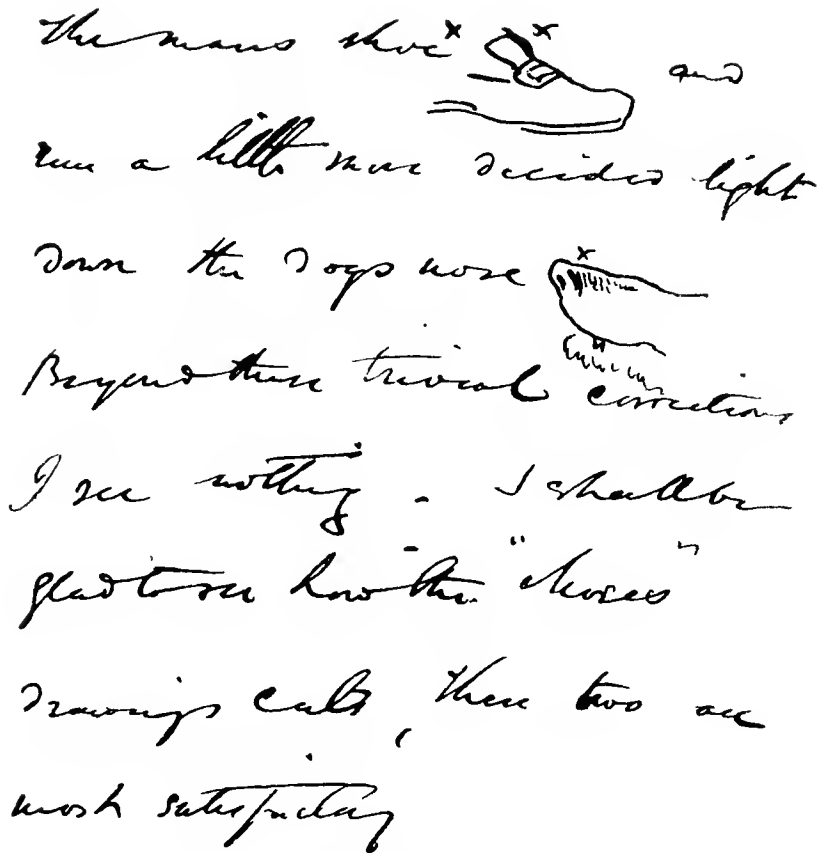 the mans shoe x x and
run a little more decided light
down the dogs nose x
Beyond these trivial corrections
I see nothing - I shall be
glad to see how the "Moses"
drawings cuts, these two are
most satisfactory